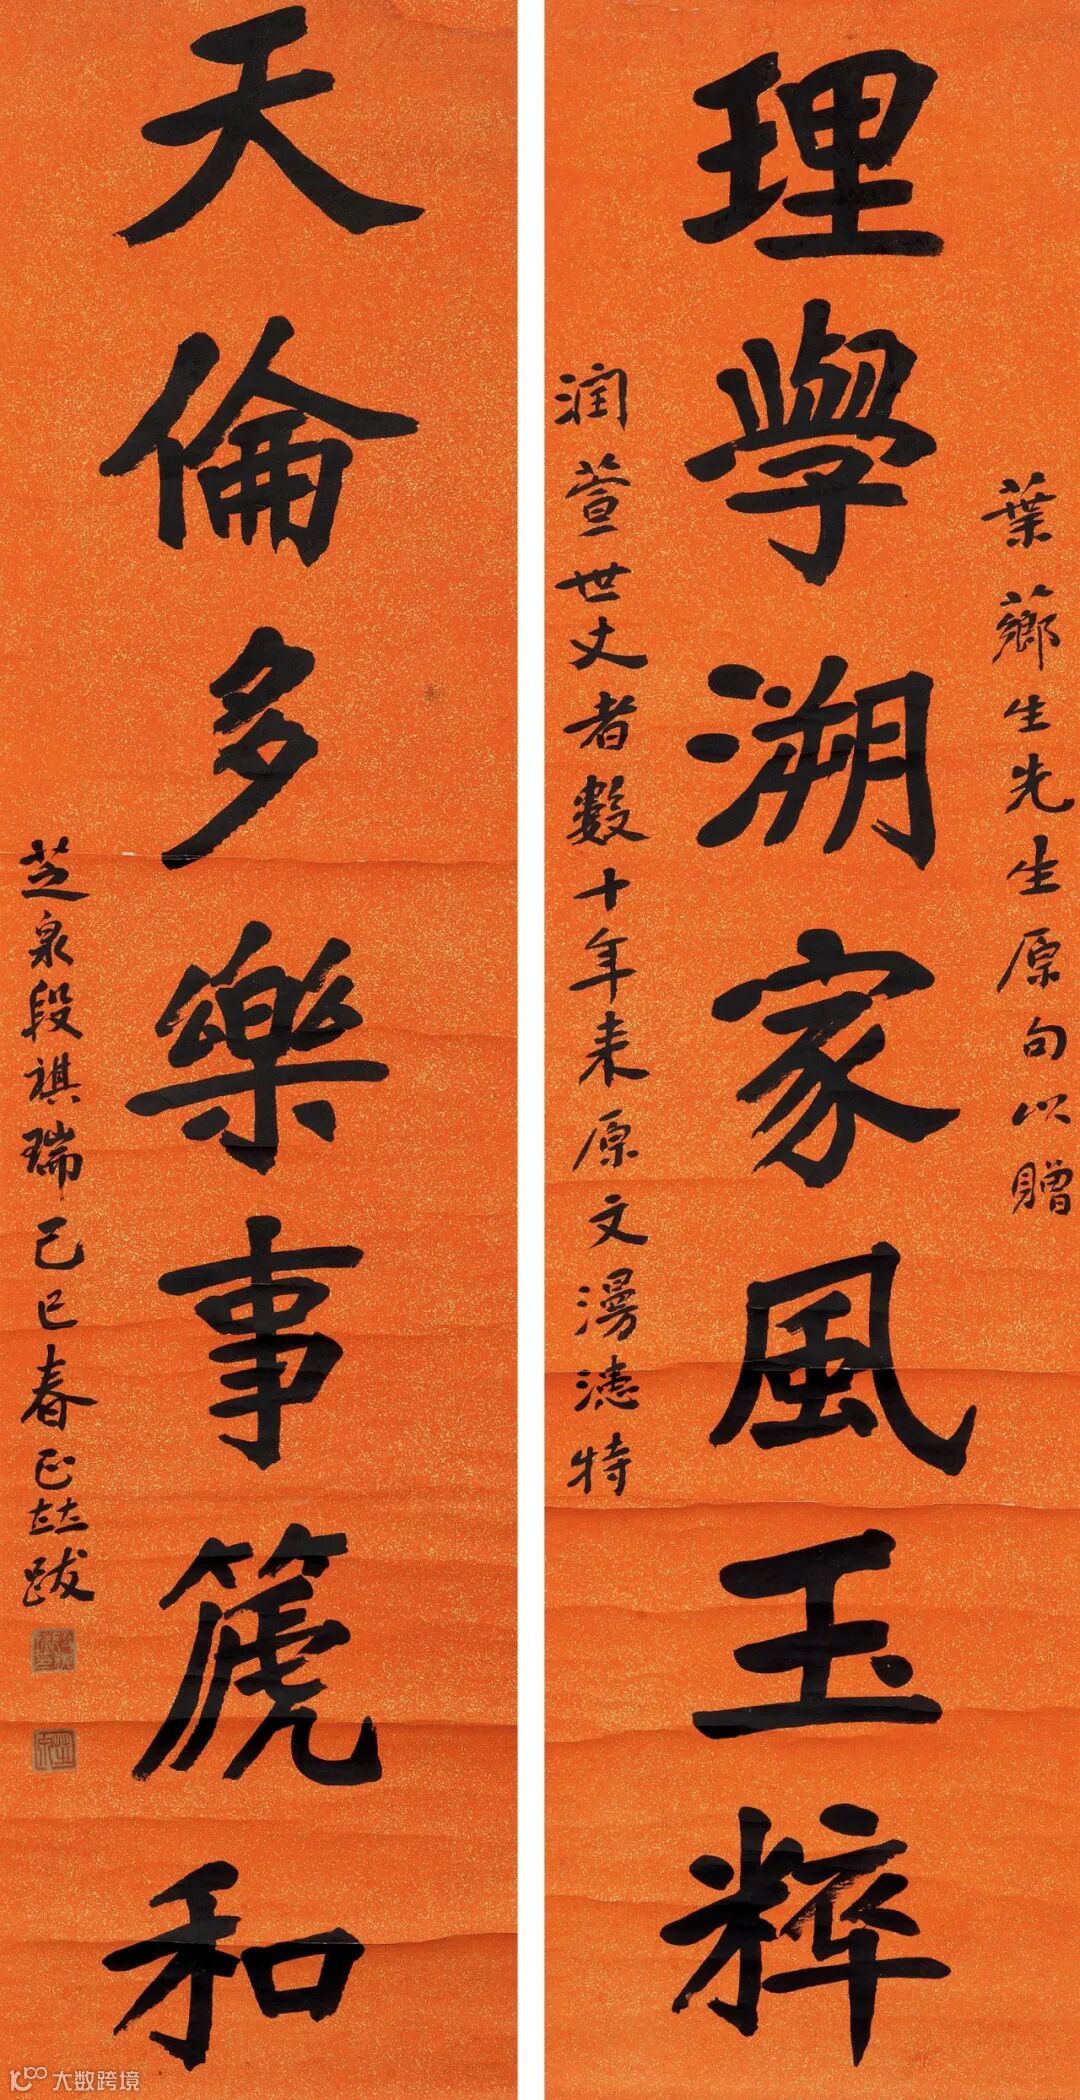 葉薌生先生原句以贈
理學溯家風玉粹
润萱世丈者數十年来原文漫漶特
天倫多樂事篪和
芝泉段祺瑞己巳春正竝跋
大数跨境